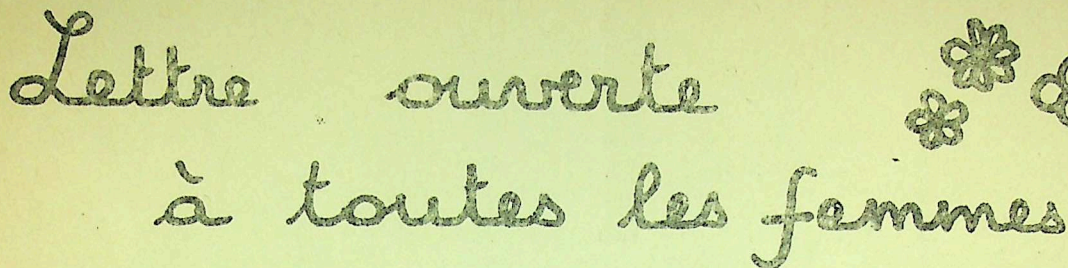 Lettre ouverte
à toutes les femmes